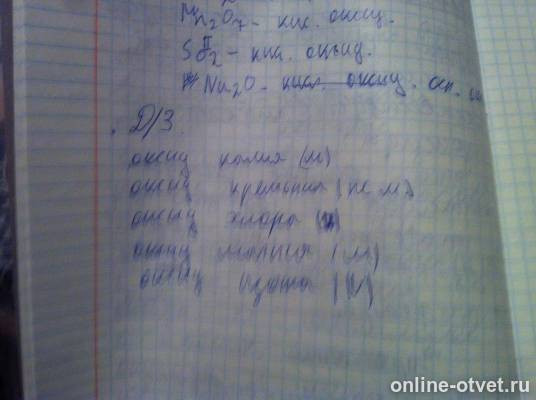 Mn₂O₇ - кис. оксид.
SO₂ - кис. оксид.
Na₂O - кисл. оксид. осн.
Д/З.
оксид калия (м)
оксид кремния (не м)
оксид хлора
оксид магния (м)
оксид азота
online-otvet.ru